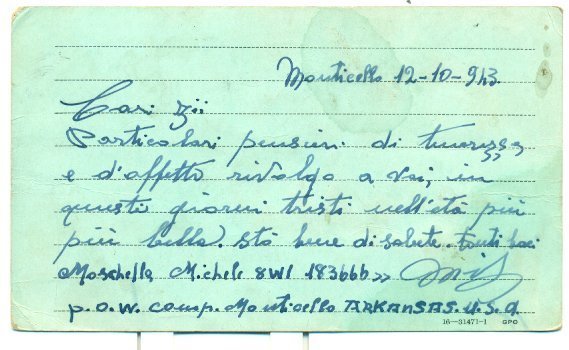 Monticello 12-10-943.
Cari zii
Particolari pensieri di tenerezza
e d'affetto rivolgo a voi, in
questi giorni tristi nell'età più
più bella. Stò bene di salute. tanti baci
Moschella Michele 8WI 183666 »
P.O.W. Camp. Monticello ARKANSAS. U.S.A.
16—31471-1 GPO